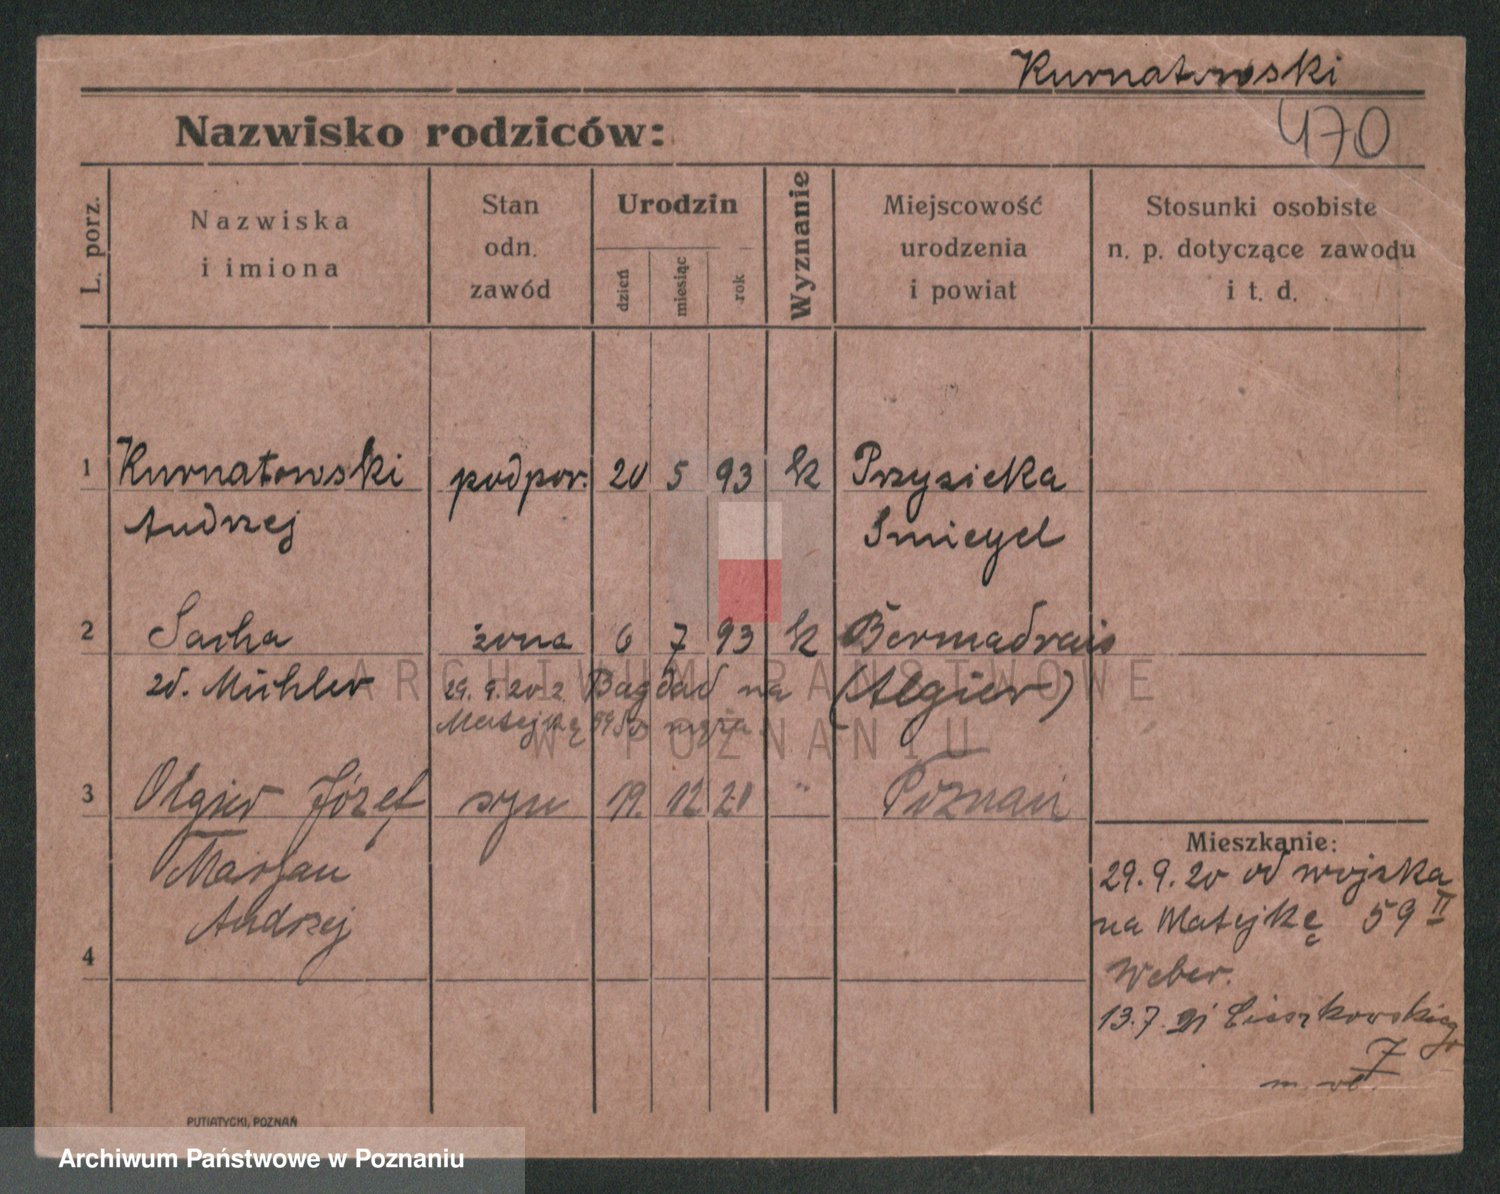 Kurnatowski
470
Nazwisko rodziców:
L. porz.
Nazwiska
i imiona
Stan
odn.
zawód
Urodzin
dzień
miesiąc
rok
Wyznanie
Miejscowość
urodzenia
i powiat
Stosunki osobiste
n. p. dotyczące zawodu
i t. d.
1 Kurnatowski podpor. 20 5 93 k Przysieka
Andrzej Śmiegel
2 Sacha żona 6 7 93 k Bermadrais
zd. Mühler 29.9.20 z Bagdad na (Algier)
Matejkę 59
3 Olgier Józef syn 19. 12 20 " Poznań
Marjan
Andrzej
4
Mieszkanie:
29.9.20 od wojska
na Matejkę 59 II
Weber.
13.7. 21
7
PUTIATYCKI, POZNAŃ
ARCHIWUM PAŃSTWOWE
W POZNANIU
Archiwum Państwowe w Poznaniu